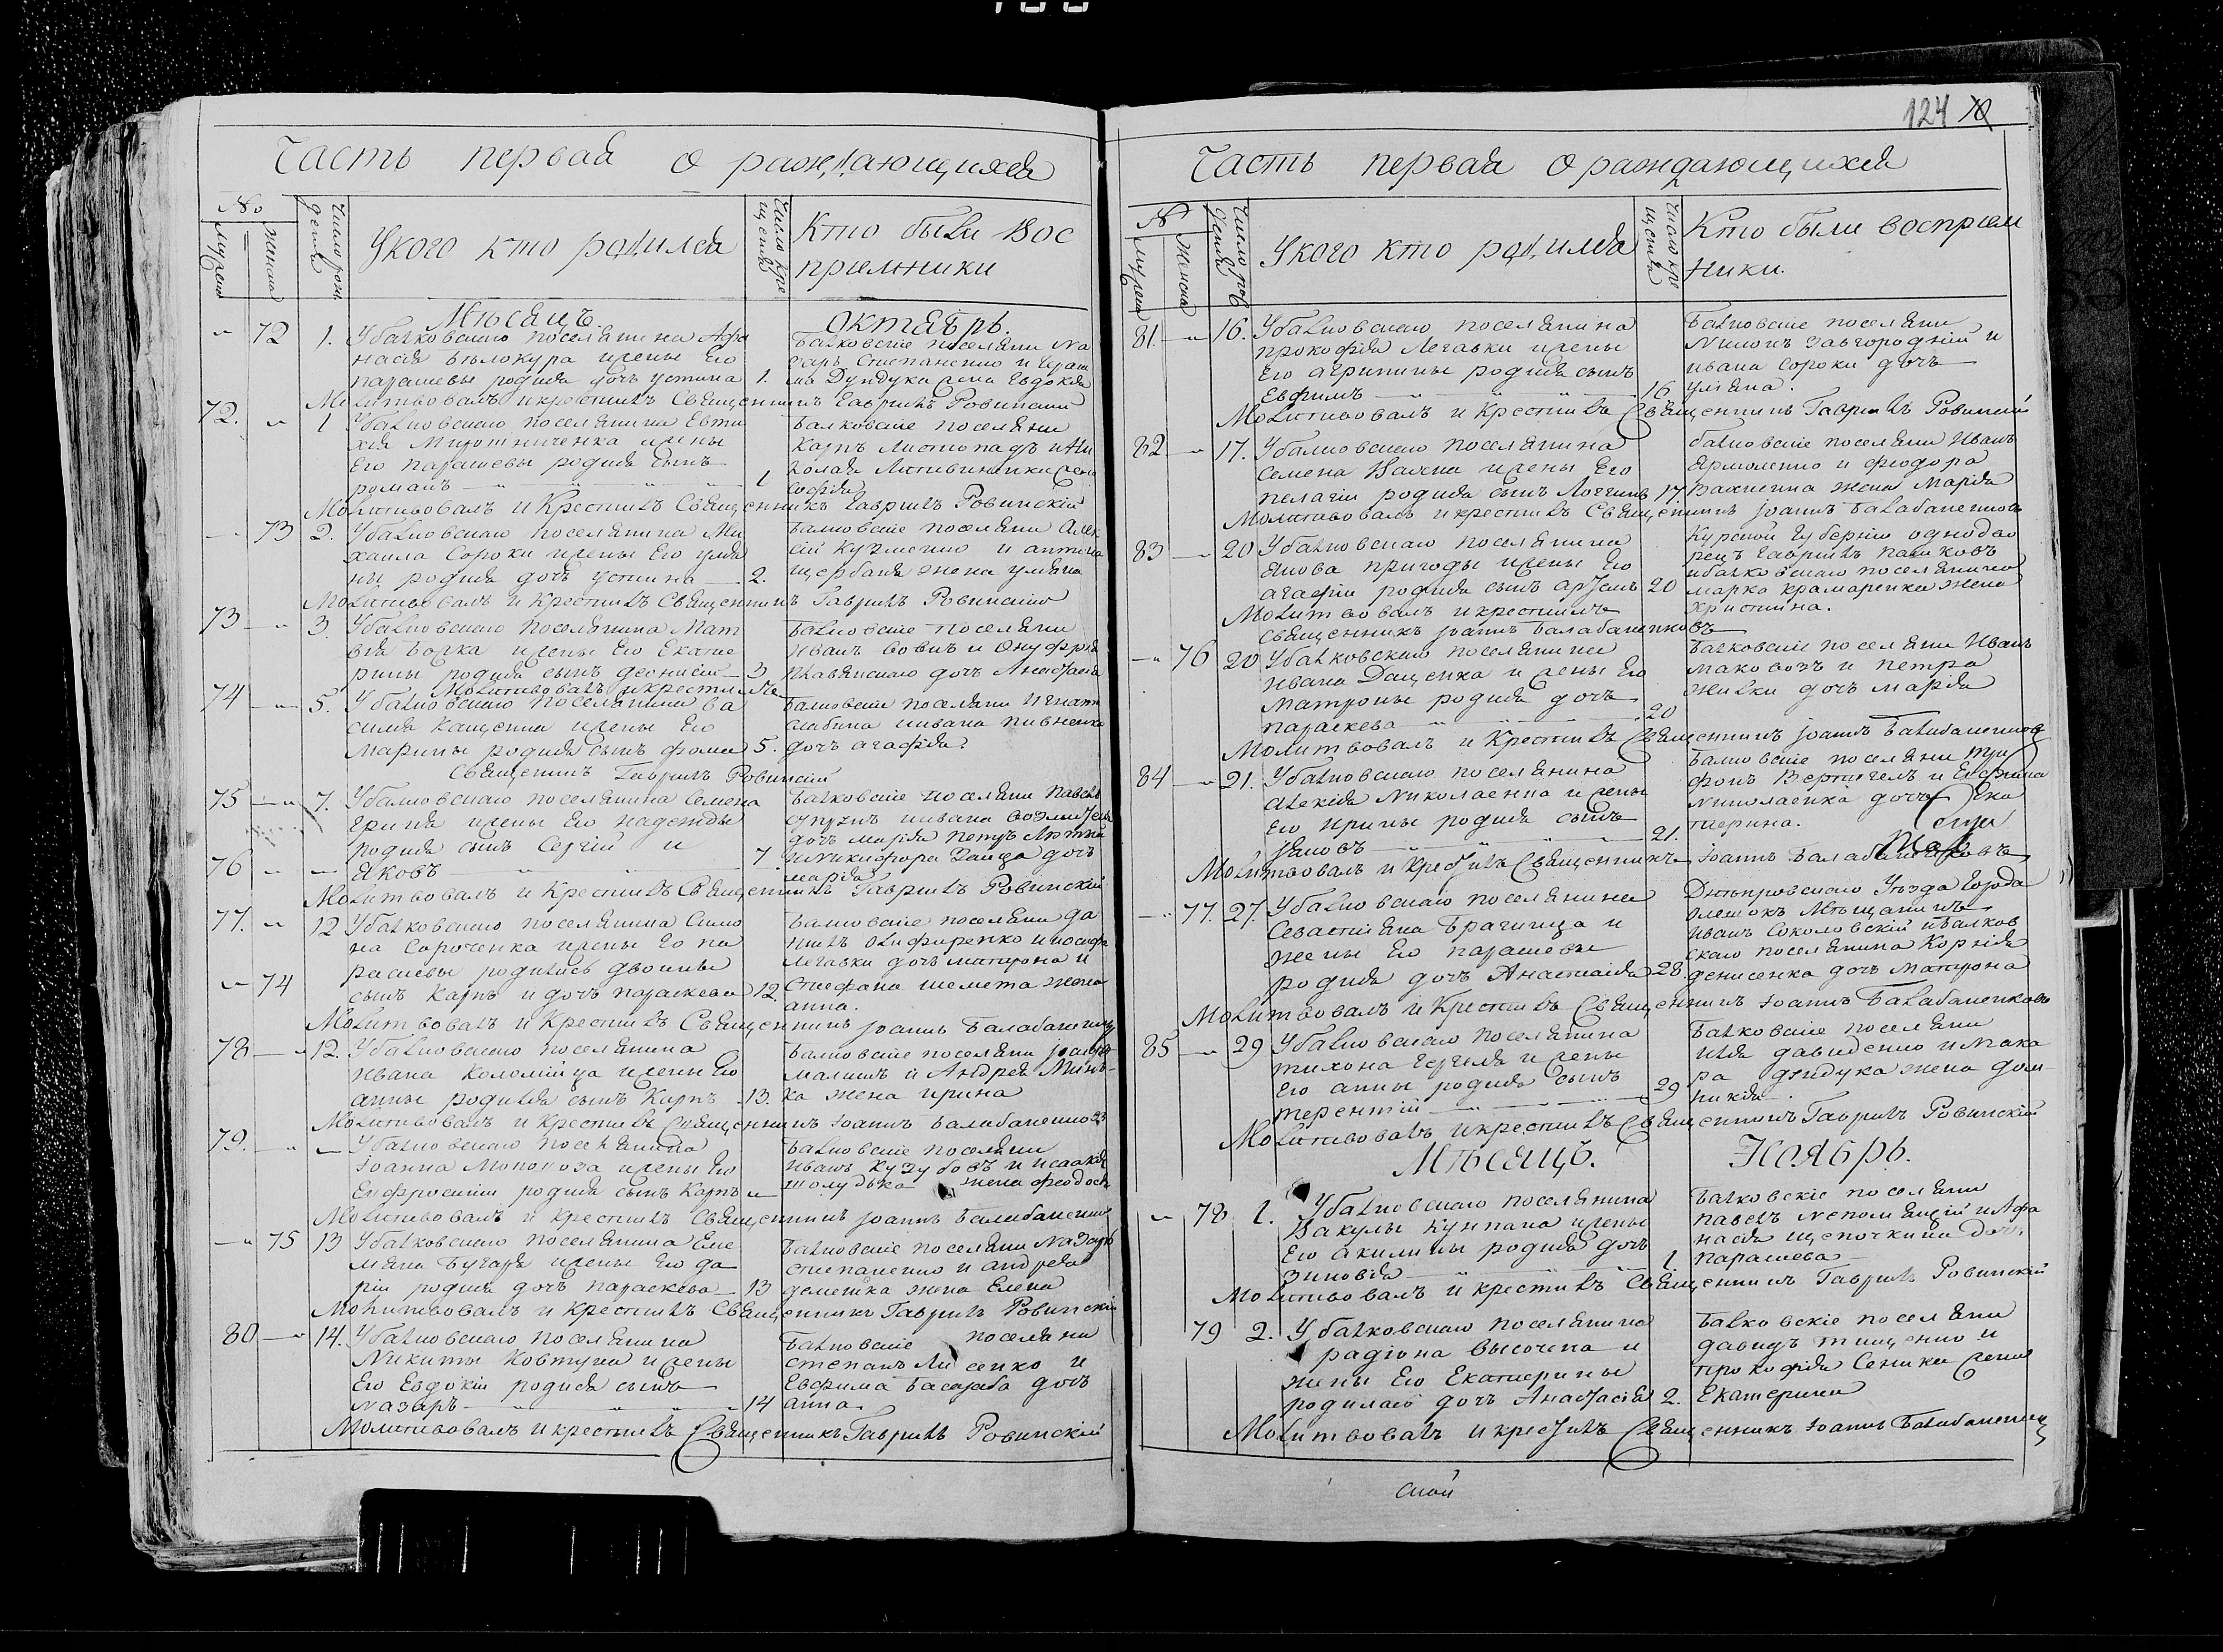 124
Часть первая о раждающихся
№
Мужеска
Женска
Число рожденія
Укого кто родился
Число крещенія
Кто были Вос
пріемники
Мѣсяцъ. Октябрь.
72 1. Убалковскаго поселянина Афа
насія Бѣлокура ижены Его
парашевы родися дочь устина 1.
Балковскіе поселяни Na
заръ Степаненко и Гераси
ма Дундука жена Евдокія
Молитвовалъ икрестилъ Священникъ Гавріилъ Ровинскій
72. 1 Убалковскаго поселянина Евти
хія Мирошниченка ижены
Его парашевы родися сынъ
романъ 1
Балковскіе поселяни
Карпъ Листопадъ и Ни
колая Литвиненки жена
Софія
Молитвовалъ и Крестилъ Священникъ Гавріилъ Ровинскій
73 2. Убалковскаго поселянина Ми
хаила Сороки ижены Его улія
ны родися дочь устина 2.
Балковскіе поселяни Алек
сій Кузменко и антона
щербаня жена уліяна
Молитвовалъ и Крестилъ Священникъ Гавріилъ Ровинскій
73 3. Убалковскаго поселянина Мат
вія Борка ижены Его Екате
рины родися сынъ деонисій 3
Балковскіе поселяни
Иванъ Вовкъ и Онуфрія
дочь Анастасія
Молитвовалъ икрестилъ
74 5. Убалковскаго поселянина Ва
силія Кащенка ижены Его
Марины родися сынъ фома 5.
Балковскіе поселяни Игнатъ
скибина иивана пивненка
дочь агафія.
Священникъ Гавріилъ Ровинскій
75 7. Убалковскаго поселянина Семена
Гриня ижены Его надежды
родися сынъ Сергій и 7
76 Яковъ
Балковскіе поселяни павелъ
дочь марія петръ Лютый
иникифора Заица дочь
марія
Молитвовалъ и Крестилъ Священникъ Гавріилъ Ровинскій
77. 12 Убалковскаго поселянина Симо
на Сороченка ижены Его па
расковы родились двоины
74 сынъ Карпъ и дочь параскева 12.
Балковскіе поселяни да
ніилъ Олифиренко иіосифа
Легавки дочь матрона и
Стефана шемета жена
анна.
Молитвовалъ и Крестилъ Священникъ Іоаннъ Балабаненко
78 12. Убалковскаго поселянина
Ивана Коломійца ижены Его
анны родися сынъ Карпъ 13.
Балковскіе поселяни Іосифъ
малишъ и Андрея Минь
ка жена ирина
Молитвовалъ и Крестилъ Священникъ Іоаннъ Балабаненковъ
79. Убалковскаго поселянина
Іоанна Моногоза ижены Его
Ефросиніи родися сынъ Карпъ
Балковскіе поселяни
Иванъ Кузубовъ и исаакія
шолудька жена феодосія
Молитвовалъ и Крестилъ Священникъ Іоаннъ Балабаненко
75 13 Убалковскаго поселянина Еме
ліана Бугаря ижены Его да
ріи родися дочь параскева 13
Балковскіе поселяни Nазаръ
степаненко и андрея
демешка жена Елена
Молитвовалъ и Крестилъ Священникъ Гавріилъ Ровинскій
80 14. Убалковскаго поселянина
Никиты Ковтуна ижены
Его Евдокіи родися сынъ
Nазаръ 14
Балковскіе поселяни
степанъ Лисенко и
Евфима Басараба дочь
анна
Молитвовалъ икрестилъ Священникъ Гавріилъ Ровинскій
Часть первая о раждающихся
№
Мужеска
Женска
Число рожденія
Укого кто родился
Число крещенія
Кто были воспріем
ники.
81 16. Убалковскаго поселянина
прокофія Легавки ижены
Его агрипины родися сынъ
Евфимъ 16
Балковскіе поселяни
Nиконъ Завгородній и
ивана Сороки дочь
уліяна.
Молитвовалъ и Крестилъ Священникъ Гавріилъ Ровинскій
82 17. Убалковскаго поселянина
Семена ижены Его
пелагіи родися сынъ Логгинъ 17.
балковскіе поселяни Иванъ
Ярмоленко и феодора
жена Марія
Молитвовалъ икрестилъ Священникъ Іоаннъ Балабаненковъ
83 20 Убалковскаго поселянина
Якова пригоды ижены Его
агафіи родися сынъ артемъ 20
Курской Губерніи однодво
рецъ Гавріилъ пашковъ
ибалковскаго поселянина
марка крамаренка жена
христина.
Молитвовалъ икрестилъ
священникъ Іоаннъ Балабаненковъ
76 20 Убалковскаго поселянина
Ивана Даценка и жены Его
матроны родися дочь
параскева 20
Балковскіе поселяни Иванъ
маковозъ и петра
жилки дочь марія
Молитвовалъ и Крестилъ Священникъ Іоаннъ Балабаненковъ
84 21. Убалковскаго поселянина
алексія Николаенка и жены
Его ирины родися сынъ
Яковъ 21.
Балковскіе поселяни три
фонъ Вертигелъ и Евфима
Николаенка дочь Ека
терина.
Молитвовалъ и Крестилъ Священникъ Іоаннъ Балабаненковъ
77. 27. Убалковскаго поселянина
Севастіяна Брагинца и
жены Его парашевы
родися дочь Анастасія 28.
Днѣпровскаго Уѣзда города
олешокъ Мѣщанинъ
Иванъ Соколовскій иБалков
скаго поселянина Корнія
денисенка дочь Матрона
Молитвовалъ и Крестилъ Священникъ Іоаннъ Балабаненковъ
85 29 Убалковскаго поселянина
тихона Гергеля и жены
Его анны родися сынъ
терентій 29
Балковскіе поселяни
илія давиденко и Мака
ра дундука жена дом
никія.
Молитвовалъ икрестилъ Священникъ Гавріилъ Ровинскій
Мѣсяцъ. Ноябрь.
78 1. Убалковскаго поселянина
Вакулы Куппана ижены
Его акилины родися дочь
Зиновія 1.
Балковскіе поселяни
павелъ и Афа
насія щепочкина дочь
парашева
Молитвовалъ и крестилъ Священникъ Гавріилъ Ровинскій
79 2. Убалковскаго поселянина
радіона Височина и
жены Его Екатерины
родилась дочь Анастасія 2.
Балковскіе поселяни
давидъ тищенко и
прокофія Сеника жена
Екатерина
Молитвовалъ икрестилъ Священникъ Іоаннъ Балабаненко